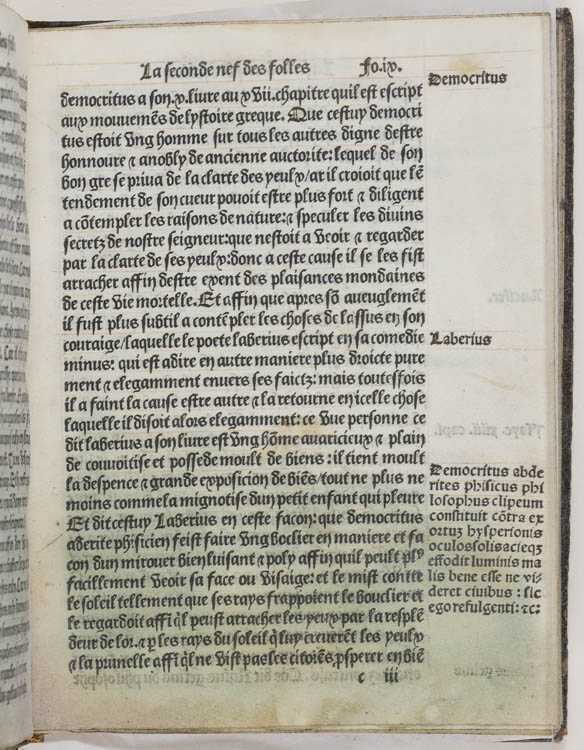 La seconde nef des folles Fo.ix.
democritus a son.x.livre au xvii.chapitre quil est escript
aux mouvemēs de lystoire greque. Que cestuy democri
tus estoit vng homme sur tous les autres digne destre
honnoure ⁊ anobly de ancienne auctorite: lequel de son
bon gre se priva de la clarte des yeulx/ar il croioit que lē
tendement de son cueur pouoit estre plus fort ⁊ diligent
a cōtempler les raisons de nature: ⁊ speculer les divins
secretz de nostre seigneur:que nestoit a veoir ⁊ regarder
par la clarte de ses yeulx:donc a ceste cause il se les fist
arracher affin destre exent des plaisances mondaines
de ceste vie mortelle. Et affin que apres sō aueuglemēt
il fust plus subtil a contēpler les choses de lassus en son
couraige/laquelle le poete laberius escript en sa comedie
minus: qui est adire en autre maniere plus droicte pure
ment ⁊ elegamment enuers ses faictz: mais toutesfois
il a faint la cause estre autre ⁊ la retourne en icelle chose
laquelle il disoit alors elegamment: ce vue personne ce
dit laberius a son livre est vng hōme auaricieux ⁊ plain
de couvoitise et possede moult de biens: il tient moult
la despence ⁊ grande exposicion de biens/tout ne plus ne
moins comme la mignotise dun petit enfant qui pleure
Et dit cestuy Laberius en ceste facon: que democritus
aderite phisicien feist faire vng boclier en maniere et fa
con dun mirouer bien luisant ⁊ poly affin quil peult plꝰ
facillement veoir sa face ou visaige: et le mist contre
le soleil tellement que ses rays frappoient le bouclier et
le regardoit affi q̄l peust attacher les yeux par la resplē
deur de lor. ⁊ p les rays du soleil q̄ luy creverēt les yeulx
⁊ la prunelle affi q̄l ne vist pas les citoiēs psperer en biē
c iii
Democritus
Laberius
Democritus abde
rites phisicus phi
losophus clipeum
constituit cōtra ex
ortus hysperionis
oculos solis acieqz
effodit luminis ma
lis bene esse ne vi
deret ciuibus : sic
ego refulgenti: ⁊c: